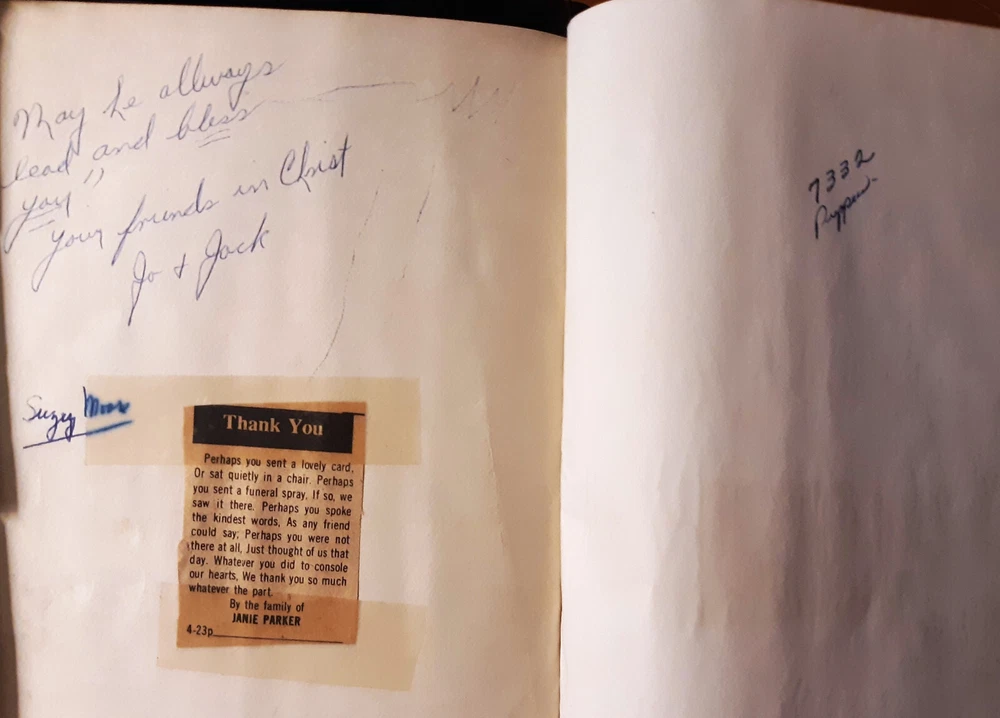 May he allways
lead and bless
you"
your friends in Christ
Jo + Jack
Suzey
Thank You
Perhaps you sent a lovely card,
Or sat quietly in a chair. Perhaps
you sent a funeral spray, If so, we
saw it there. Perhaps you spoke
the kindest words, As any friend
could say; Perhaps you were not
there at all, Just thought of us that
day. Whatever you did to console
our hearts, We thank you so much
whatever the part.
By the family of
JANIE PARKER
4-23p
7332